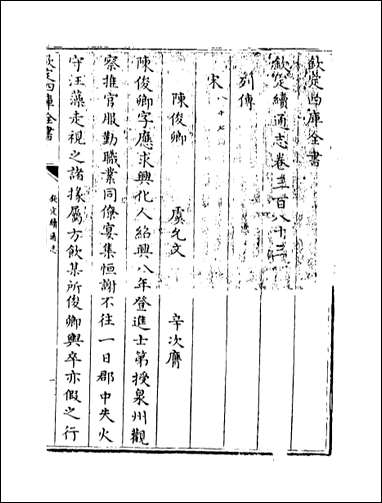 欽定四庫全書
欽定續通志卷三百八十三
列傳
宋八十七
陳俊卿 虞允文 辛次膺
陳俊卿字應求興化人紹興八年登進士第授泉州觀
察推官服勤職業同僚宴集恒謝不往一日郡中失火
守汪藻走視之諸掾屬方飲某所俊卿輿卒亦假之行
欽定四庫全書
欽定續通志